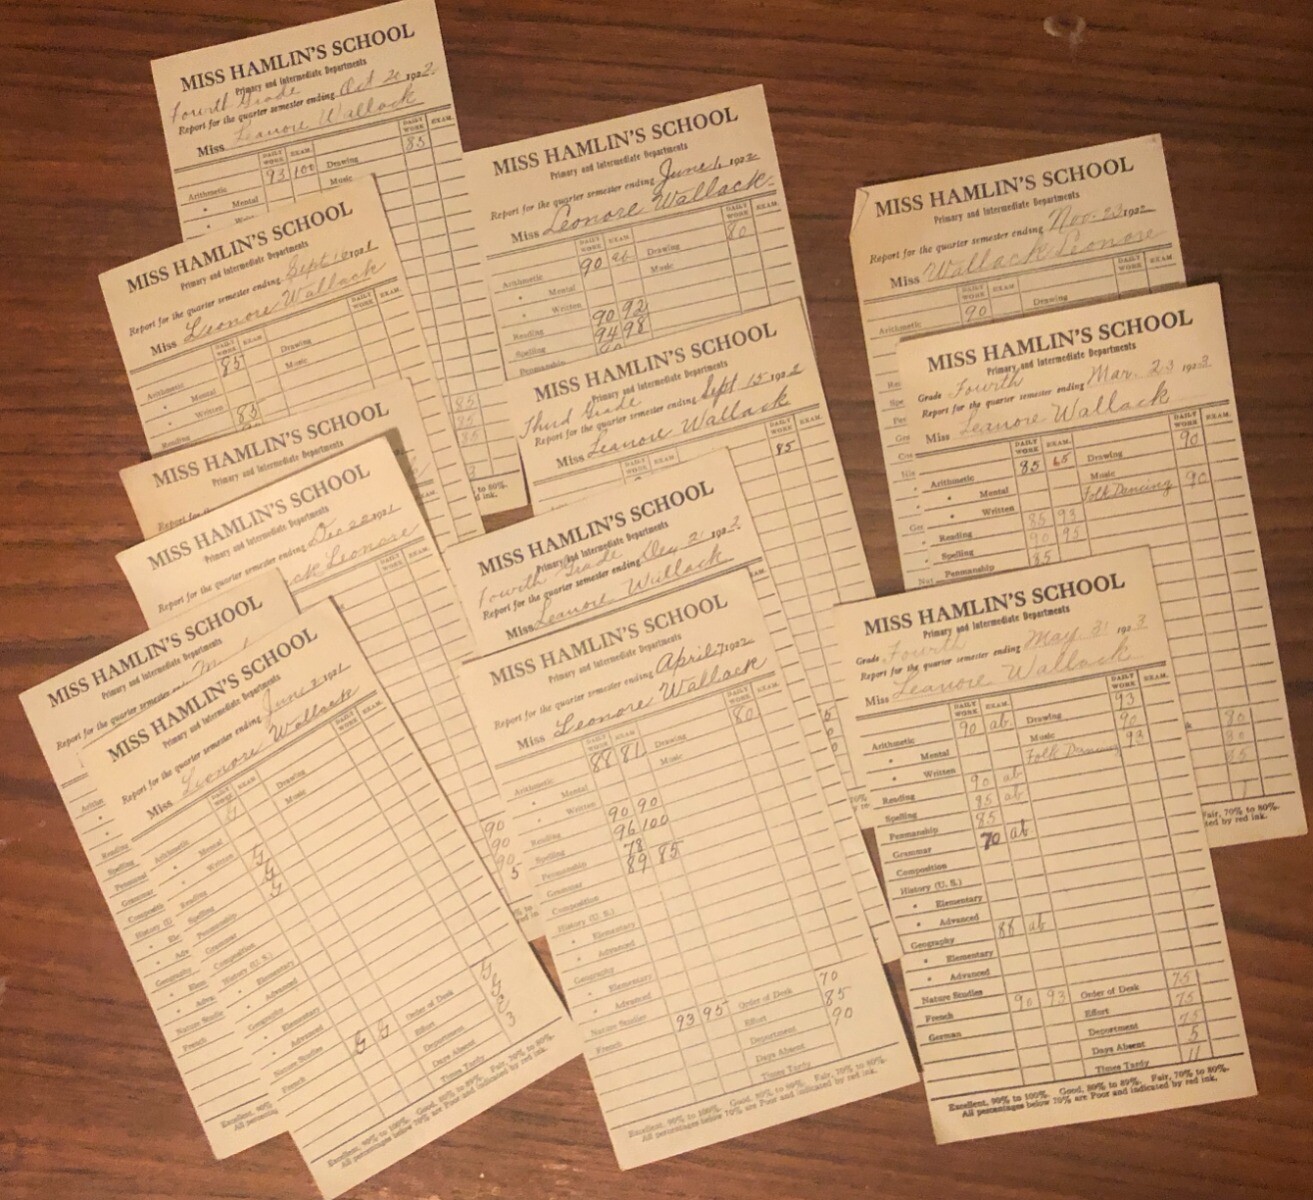 MISS HAMLIN'S SCHOOL
Primary and Intermediate Departments
Fourth Grade
Report for the quarter semester ending Oct 20 1922
Miss Leanore Wallack
DAILY WORK EXAM. DAILY WORK EXAM.
Arithmetic 93 100 Drawing 85
" Mental Music
MISS HAMLIN'S SCHOOL
Primary and Intermediate Departments
Report for the quarter semester ending Sept 16 1921
Miss Leonore Wallack
DAILY WORK EXAM. DAILY WORK EXAM.
Arithmetic 85 Drawing
" Mental Music
" Written 85
Reading
MISS HAMLIN'S SCHOOL
Primary and Intermediate Departments
Report for the
MISS HAMLIN'S SCHOOL
Primary and Intermediate Departments
Report for the quarter semester ending Dec 22 1921
Leonore
DAILY WORK EXAM.
MISS HAMLIN'S SCHOOL
Primary and Intermediate Departments
Report for the quarter semester
Reading
Spelling
History (U
Geography
Nature Studie
French
Excellent, 90%
All percentages
MISS HAMLIN'S SCHOOL
Primary and Intermediate Departments
Report for the quarter semester ending June 2 1921
Miss Leonore Wallack
DAILY WORK EXAM. DAILY WORK EXAM.
Arithmetic G Drawing
" Mental Music
" Written G
Reading G
Spelling G
Penmanship
Grammar
Composition
History (U. S.)
" Elementary
" Advanced
Geography
" Elementary
" Advanced
Nature Studies
French G G
Order of Desk G
Effort G
Department G
Days Absent 3
Times Tardy
Excellent, 90% to 100%. Good, 80% to 89%. Fair, 70% to 80%.
All percentages below 70% are Poor and indicated by red ink.
MISS HAMLIN'S SCHOOL
Primary and Intermediate Departments
Report for the quarter semester ending June 1, 1922
Miss Leonore Wallack
DAILY WORK EXAM. DAILY WORK EXAM.
Arithmetic 90 ab Drawing 80
" Mental Music
" Written
Reading 90 92
Spelling 94 98
Penmanship
85
85
85
to 80%.
d ink.
MISS HAMLIN'S SCHOOL
Primary and Intermediate Departments
Third Grade
Report for the quarter semester ending Sept 15 1922
Miss Leanore Wallack
DAILY WORK EXAM. DAILY WORK EXAM.
85
MISS HAMLIN'S SCHOOL
Primary and Intermediate Departments
Fourth Grade
Report for the quarter semester ending Dec 21 1922
Miss Leanore Wallack
90
90
90
5
MISS HAMLIN'S SCHOOL
Primary and Intermediate Departments
Report for the quarter semester ending April 7, 1922
Miss Leonore Wallack
DAILY WORK EXAM. DAILY WORK EXAM.
Arithmetic 88 81 Drawing 80
" Mental Music
" Written
Reading 90 90
Spelling 96 100
Penmanship 78
Grammar 89 85
Composition
History (U. S.)
" Elementary
" Advanced
Geography
" Elementary
" Advanced
Nature Studies
French 93 95
Order of Desk 70
Effort 85
Department 90
Days Absent
Times Tardy
Excellent, 90% to 100%. Good, 80% to 89%. Fair, 70% to 80%.
All percentages below 70% are Poor and indicated by red ink.
MISS HAMLIN'S SCHOOL
Primary and Intermediate Departments
Report for the quarter semester ending Nov. 23 1922
Miss Wallack Leonore
DAILY WORK EXAM. DAILY WORK EXAM.
Arithmetic 90 Drawing
MISS HAMLIN'S SCHOOL
Primary and Intermediate Departments
Grade Fourth
Report for the quarter semester ending Mar. 23 1923
Miss Leanore Wallack
DAILY WORK EXAM. DAILY WORK EXAM.
Arithmetic 85 65 Drawing 90
" Mental Music
" Written Folk Dancing 90
Reading 85 93
Spelling 90 95
Penmanship 85
80
80
85
1
Fair, 70% to 80%.
ted by red ink.
MISS HAMLIN'S SCHOOL
Primary and Intermediate Departments
Grade Fourth
Report for the quarter semester ending May 31 1923
Miss Leanore Wallack
DAILY WORK EXAM. DAILY WORK EXAM.
Arithmetic 90 ab. Drawing 93
" Mental Music 90
" Written Folk Dancing 93
Reading 90 ab
Spelling 95 ab
Penmanship 85
Grammar 70 ab
Composition
History (U. S.)
" Elementary
" Advanced
Geography 88 ab
" Elementary
" Advanced
Nature Studies
French 90 93
German
Order of Desk 75
Effort 75
Department 75
Days Absent 5
Times Tardy 11
Excellent, 90% to 100%. Good, 80% to 89%. Fair, 70% to 80%.
All percentages below 70% are Poor and indicated by red ink.